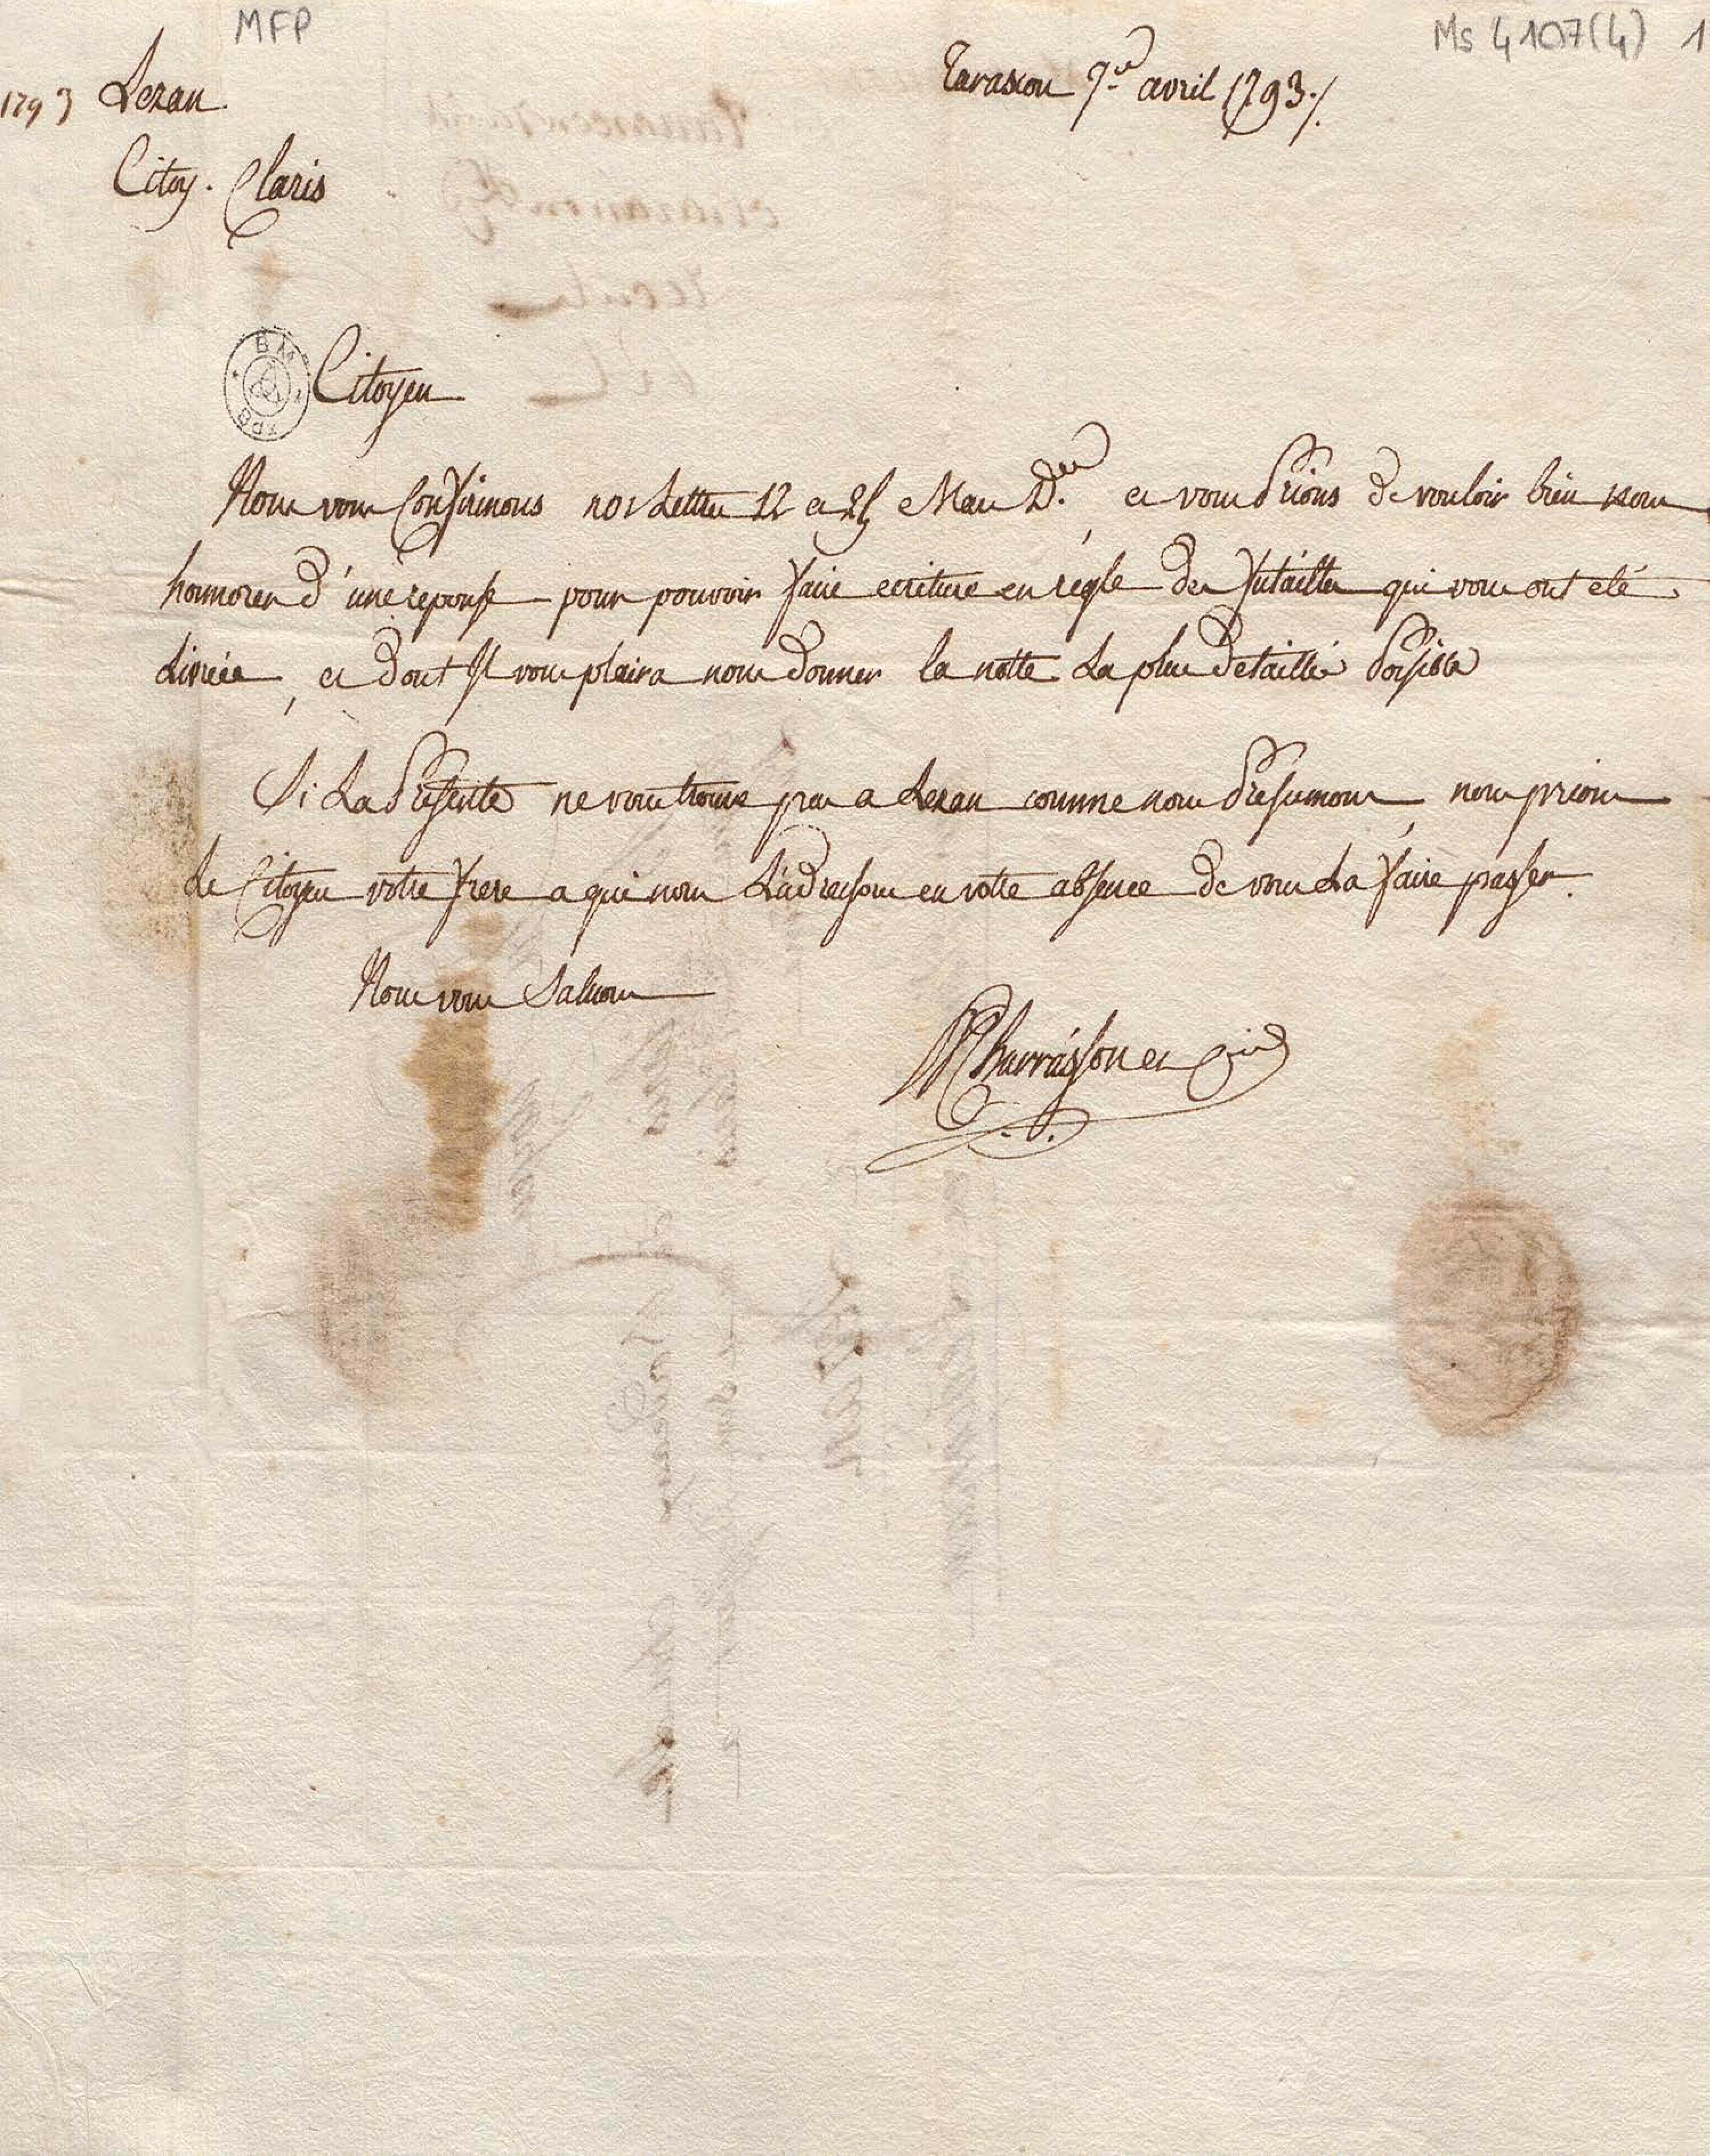 MFP
Ms 4107(4) 1
1793 Lezan
Tarascon 9.re avril 1793 ./.
Citoy. Claris
BM
BDX
Citoyen
Nous vous Confirmons nos Lettres 12 et 25 Mars D.er et vous Prions de vouloir bien nous
honnorer d'une reponse pour pouvoir faire ecriture en régle des futailles qui vous ont eté
Livrées, et dont Il vous plaira nous donner la notte La plus detaillé Possible
Si La Presente ne vous trouve pas a Lezan comme nous Presumons, nous prions
Le Citoyen votre frere a qui nous L'adressons en votre absence de vous La faire passer.
Nous vous Saluons
Charrásson et